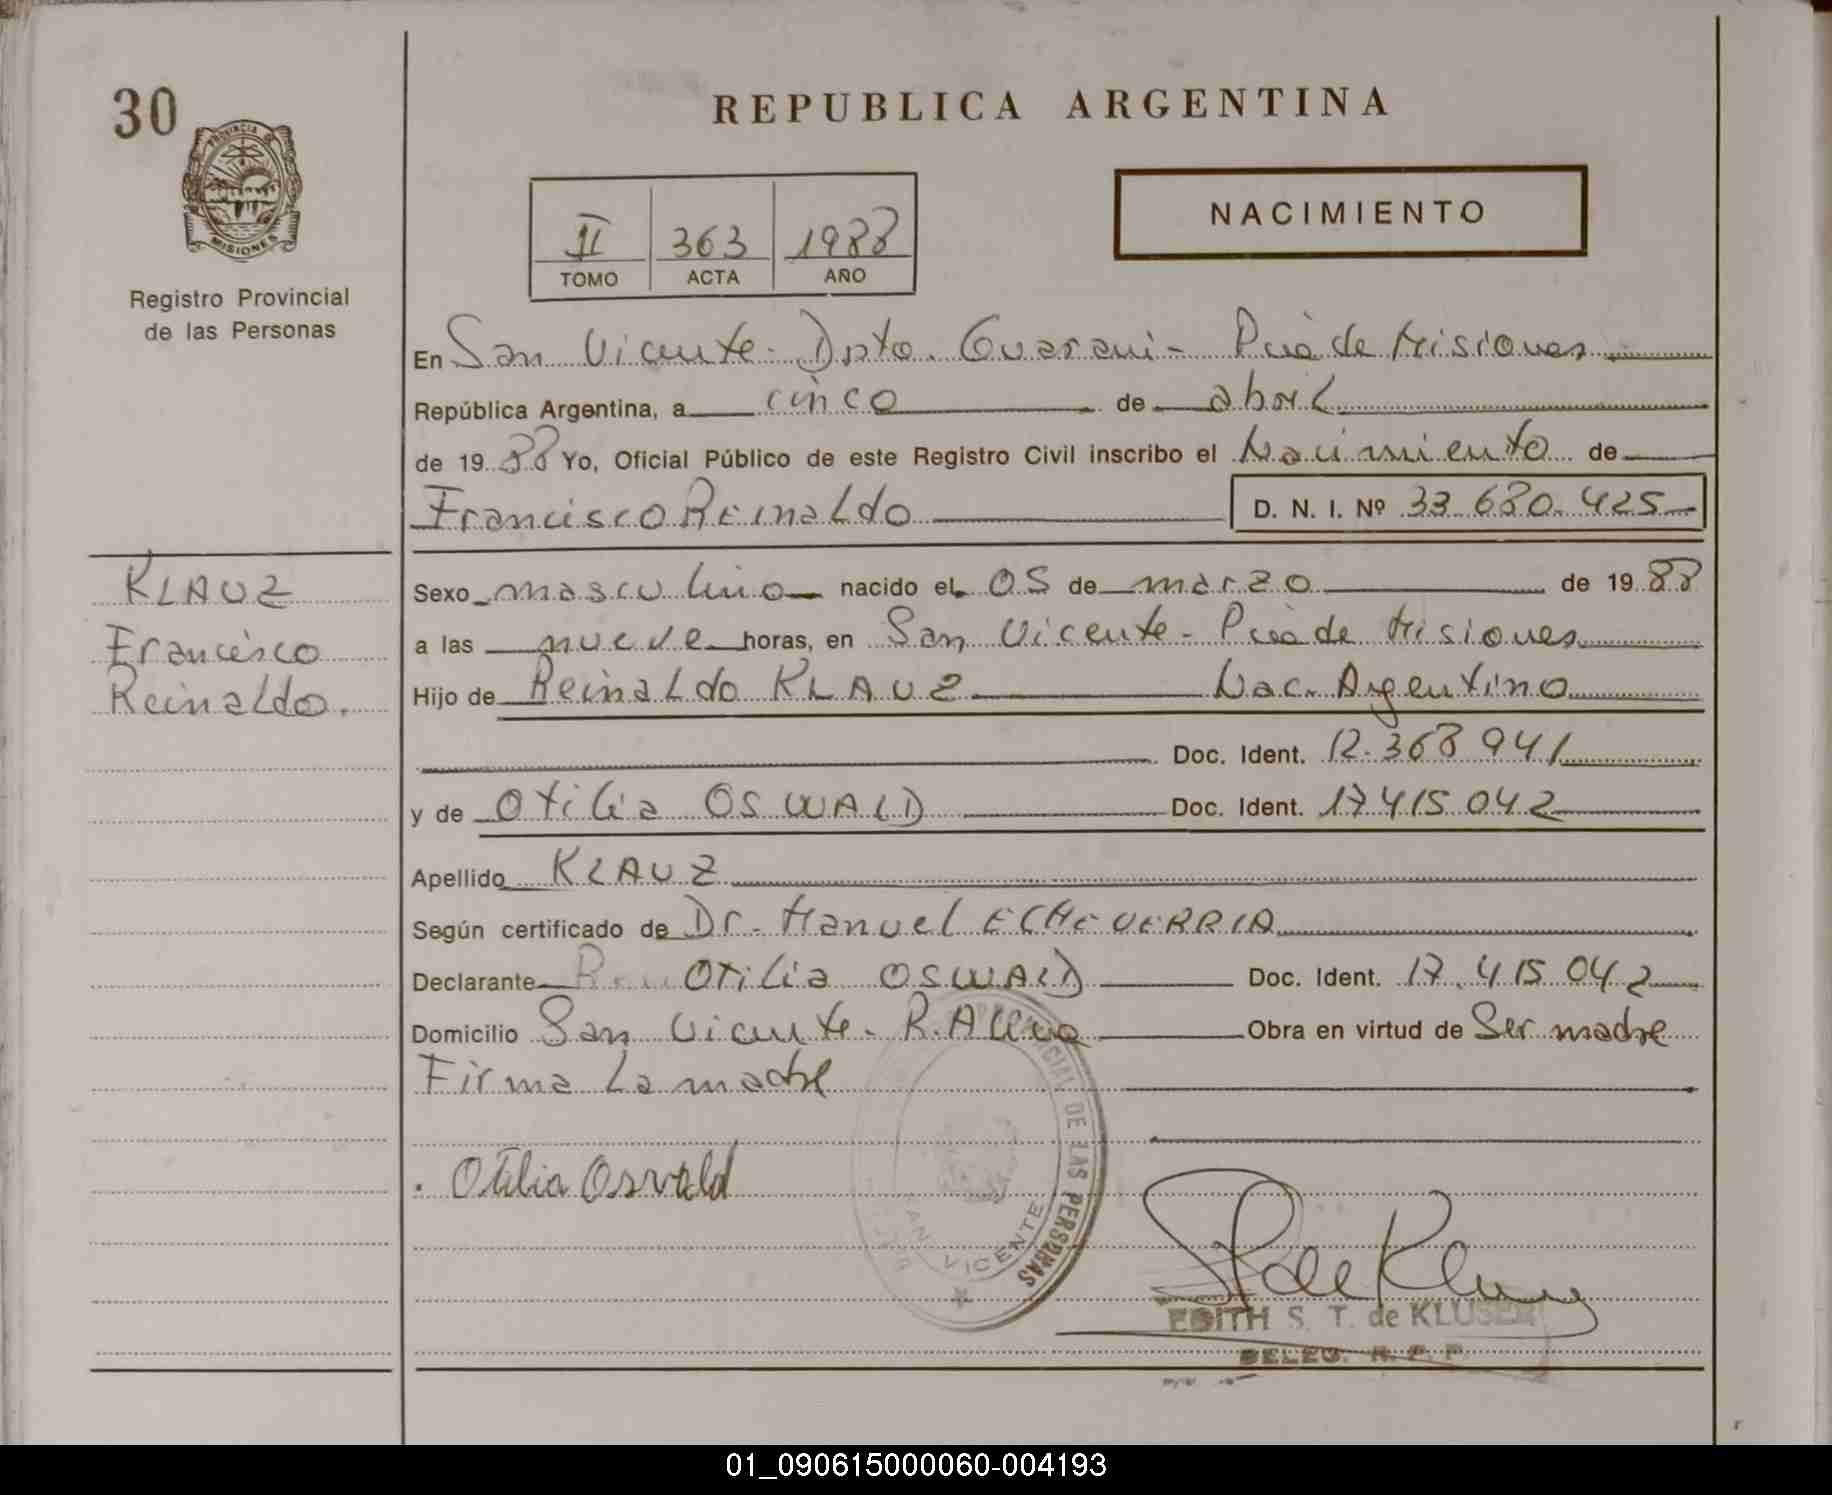 30
REPUBLICA ARGENTINA
PROVINCIA DE
MISIONES
Registro Provincial
de las Personas
NACIMIENTO
II 363 1988
TOMO ACTA AÑO
En San Vicente - Dpto. Guarani - Pcia de Misiones
República Argentina, a cinco de abril
de 1988 Yo, Oficial Público de este Registro Civil inscribo el Nacimiento de
Francisco Reinaldo D. N. I. Nº 33.680.425
KLAUZ
Francisco
Reinaldo.
Sexo masculino nacido el 05 de marzo de 1988
a las nueve horas, en San Vicente - Pcia de Misiones
Hijo de Reinaldo KLAUZ Nac. Argentino
Doc. Ident. 12.368 941
y de Otilia OSWALD Doc. Ident. 17.415.042
Apellido KLAUZ
Según certificado de Dr. Manuel ECHEVERRIA
Declarante Otilia OSWALD Doc. Ident. 17.415 042
Domicilio San Vicente - Obra en virtud de Ser madre
Firma La madre
PROVINCIAL DE LAS PERSONAS
SAN VICENTE
Otilia Osvald
EDITH S. T. de KLUSER
DELEG. R. P. P.
01_090615000060-004193